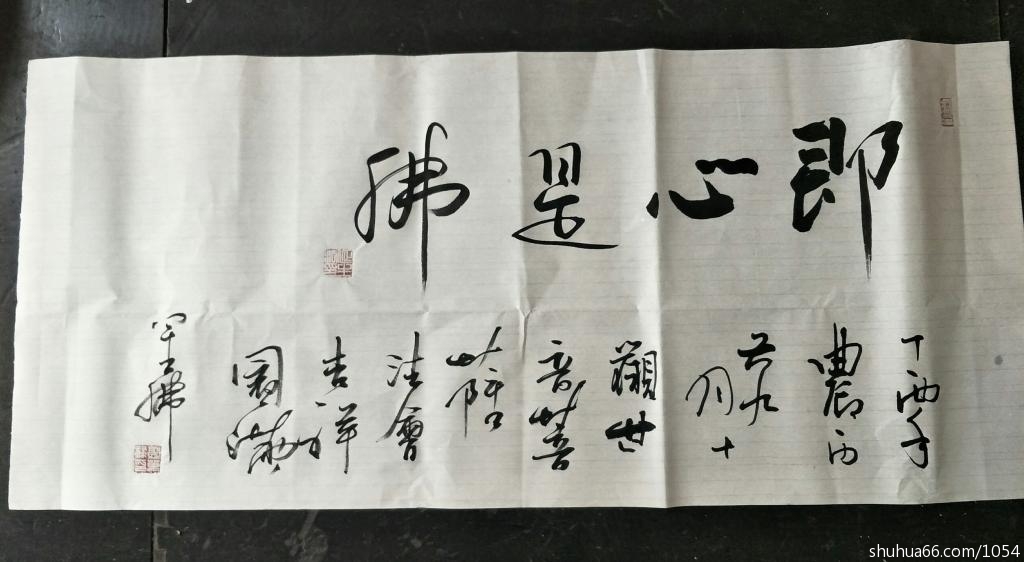 即心是佛
丁酉年
農
月十
觀世
音菩
薩
法會
吉祥
圓滿
佛
shuhua66.com/1054